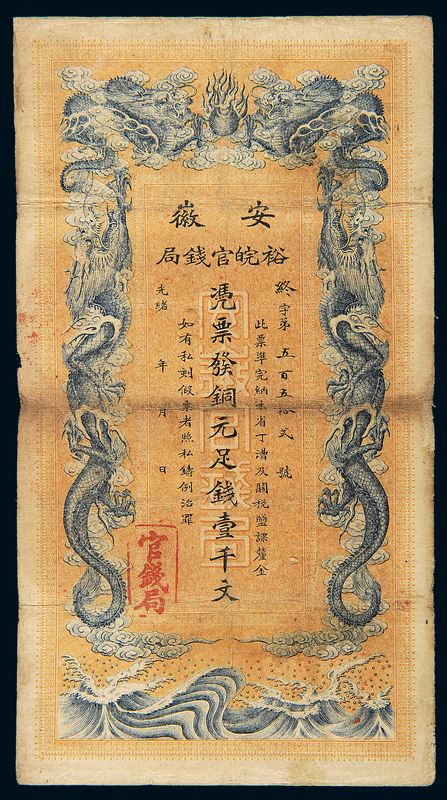 安徽
裕皖官錢局
終字第五百五拾弍號
此票準完納本省丁漕及關稅鹽課釐金
憑票發銅元足錢壹千文
如有私刻假票者照私鑄例治罪
光緒 年 月 日
官錢局